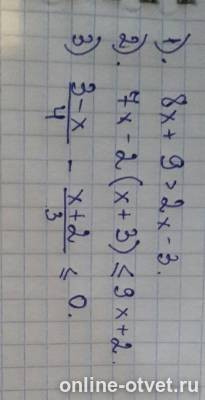 1). 8x + 9 > 2x - 3.
2). 7x - 2(x + 3) ≤ 9x + 2.
3) (3 - x)/4 - (x + 2)/3 ≤ 0.
online-otvet.ru